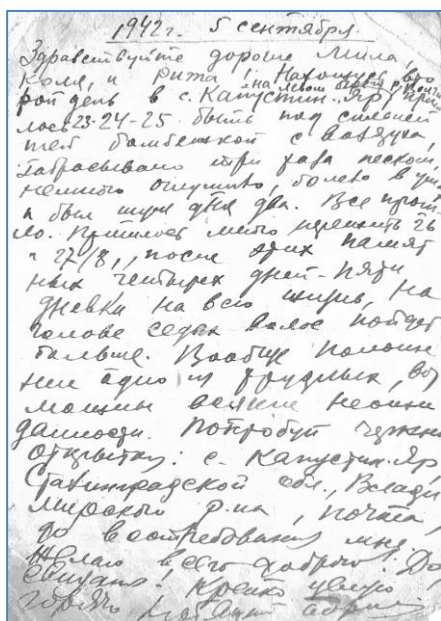 1942 г. 5 сентября.
Здравствуйте дорогие Мила,
Коля, и Рита! Нахожусь вто
рой день в с. Капустин-Яр, на левом берегу р. Волги при
лось 23-24-25 быть под сильней
шей бомбежкой с воздуха,
забрасывало три раза песком,
немного оглушило, болело в уш
и был шум дня два. Все прош
ло. Пришлось много пережить 26
и 27/8, после этих памят
ных четырех дней-пяти
дневки на всю жизнь, на
голове седых волос пойдет
больше. Вообще положе
ние одно из трудных, воз
можны всякие неожи
данности. Попробуй черкни
открытку: с. Капустин-Яр,
Сталинградской обл., Влади
мирского р-на, почта,
до востребования мне.
Желаю всего доброго! До
свидания! Крепко целую
горячо